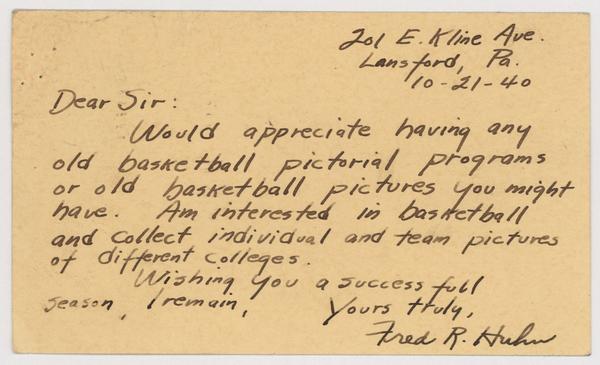 201 E. Kline Ave.
Lansford, Pa.
10-21-40
Dear Sir:
Would appreciate having any
old basketball pictorial programs
or old basketball pictures you might
have. Am interested in basketball
and collect individual and team pictures
of different colleges.
Wishing you a successfull
season, I remain, Yours truly,
Fred R. Huhn